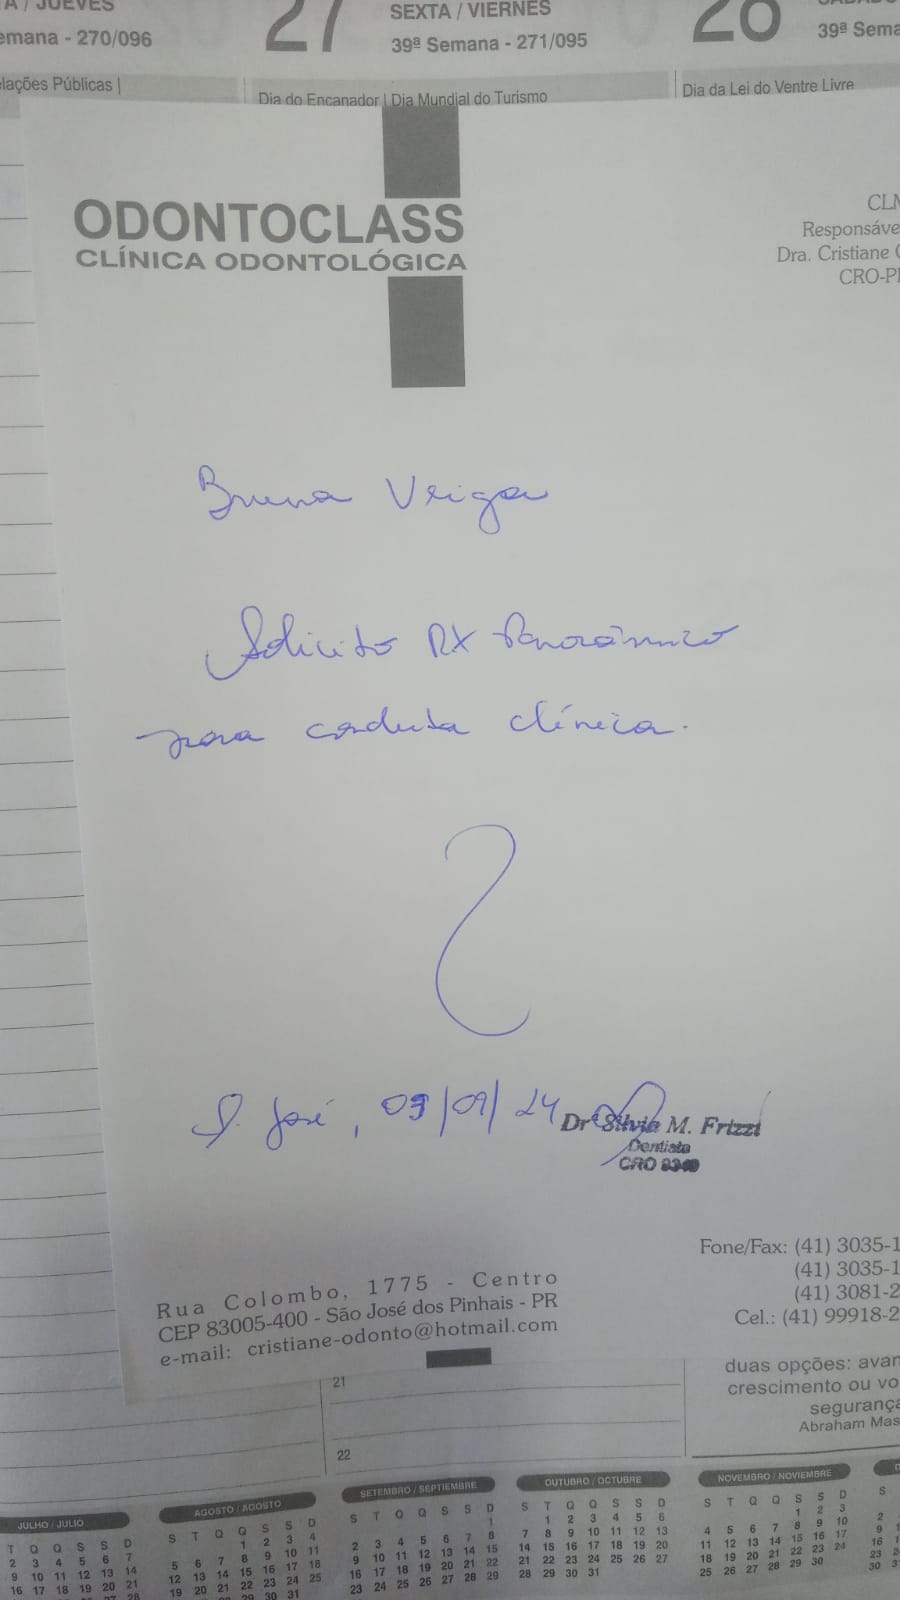 A / JUEVES
emana - 270/096
27
SEXTA / VIERNES
39ª Semana - 271/095
28
39ª Sema
elações Públicas |
Dia do Encanador | Dia Mundial do Turismo
Dia da Lei do Ventre Livre
ODONTOCLASS
CLÍNICA ODONTOLÓGICA
CLM
Responsáve
Dra. Cristiane
CRO-P
Bruna Veiga
Solicito RX Panorâmico
para conduta clínica.
S. José, 09/09/24
Drª Silvia M. Frizzi
Dentista
CRO
Fone/Fax: (41) 3035-1
(41) 3035-1
(41) 3081-2
Cel.: (41) 99918-2
Rua Colombo, 1775 - Centro
CEP 83005-400 - São José dos Pinhais - PR
e-mail: cristiane-odonto@hotmail.com
duas opções: avan
crescimento ou vo
segurança
Abraham Mas
21
22
JULHO / JULIO
T Q Q S S D
2 3 4 5 6 7
9 10 11 12 13 14
16 17 18 19 20 21
AGOSTO / AGOSTO
S T Q Q S S D
1 2 3 4
5 6 7 8 9 10 11
12 13 14 15 16 17 18
19 20 21 22 23 24 25
30 31
SETEMBRO / SEPTIEMBRE
S T Q Q S S D
1
2 3 4 5 6 7 8
9 10 11 12 13 14 15
16 17 18 19 20 21 22
23 24 25 26 27 28 29
OUTUBRO / OCTUBRE
S T Q Q S S D
1 2 3 4 5 6
7 8 9 10 11 12 13
14 15 16 17 18 19 20
21 22 23 24 25 26 27
28 29 30 31
NOVEMBRO / NOVIEMBRE
S T Q Q S S D
1 2 3
4 5 6 7 8 9 10
11 12 13 14 15 16 17
18 19 20 21 22 23 24
25 26 27 28 29 30
S
2
9
16
23
30